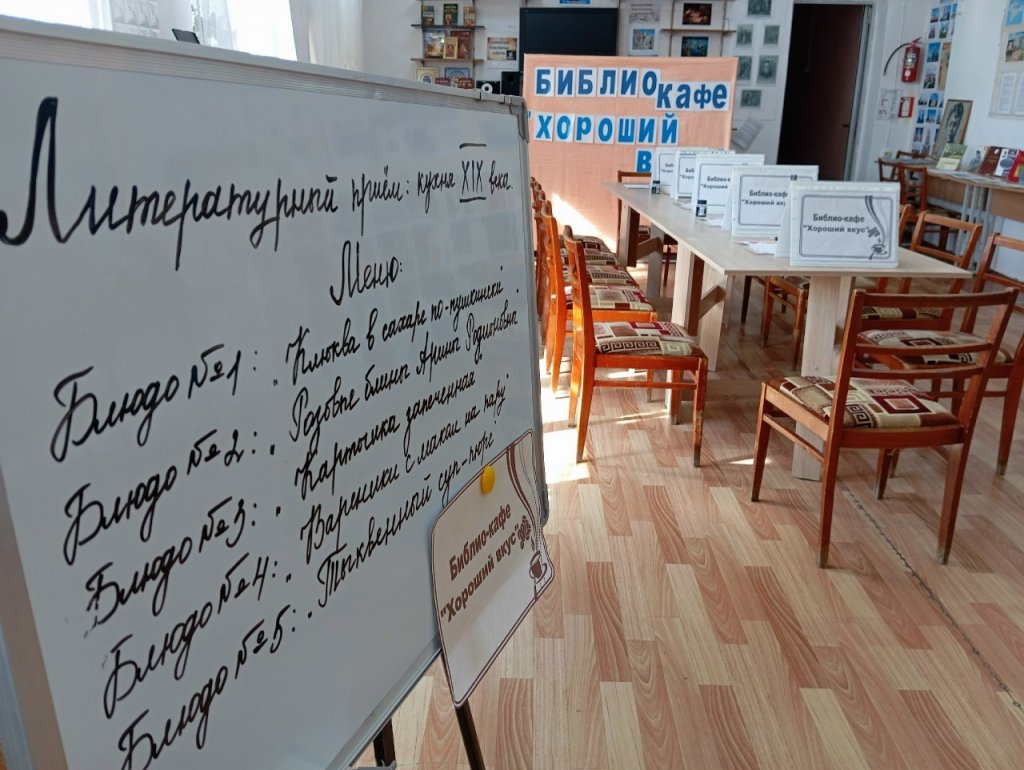 Литературный приём: кухня XIX века.
Меню:
Блюдо №1: "Клюква в сахаре по-пушкински"
Блюдо №2: "Розовые блины Арины Родионовны"
Блюдо №3: "Картошка запеченная"
Блюдо №4: "Вареники с маком на пару"
Блюдо №5: "Тыквенный суп-пюре"
Библио-кафе
"Хороший вкус"
БИБЛИО
кафе
"хороший
в
Библио-кафе
"Хороший вкус"
Библио-кафе
"Хороший вкус"